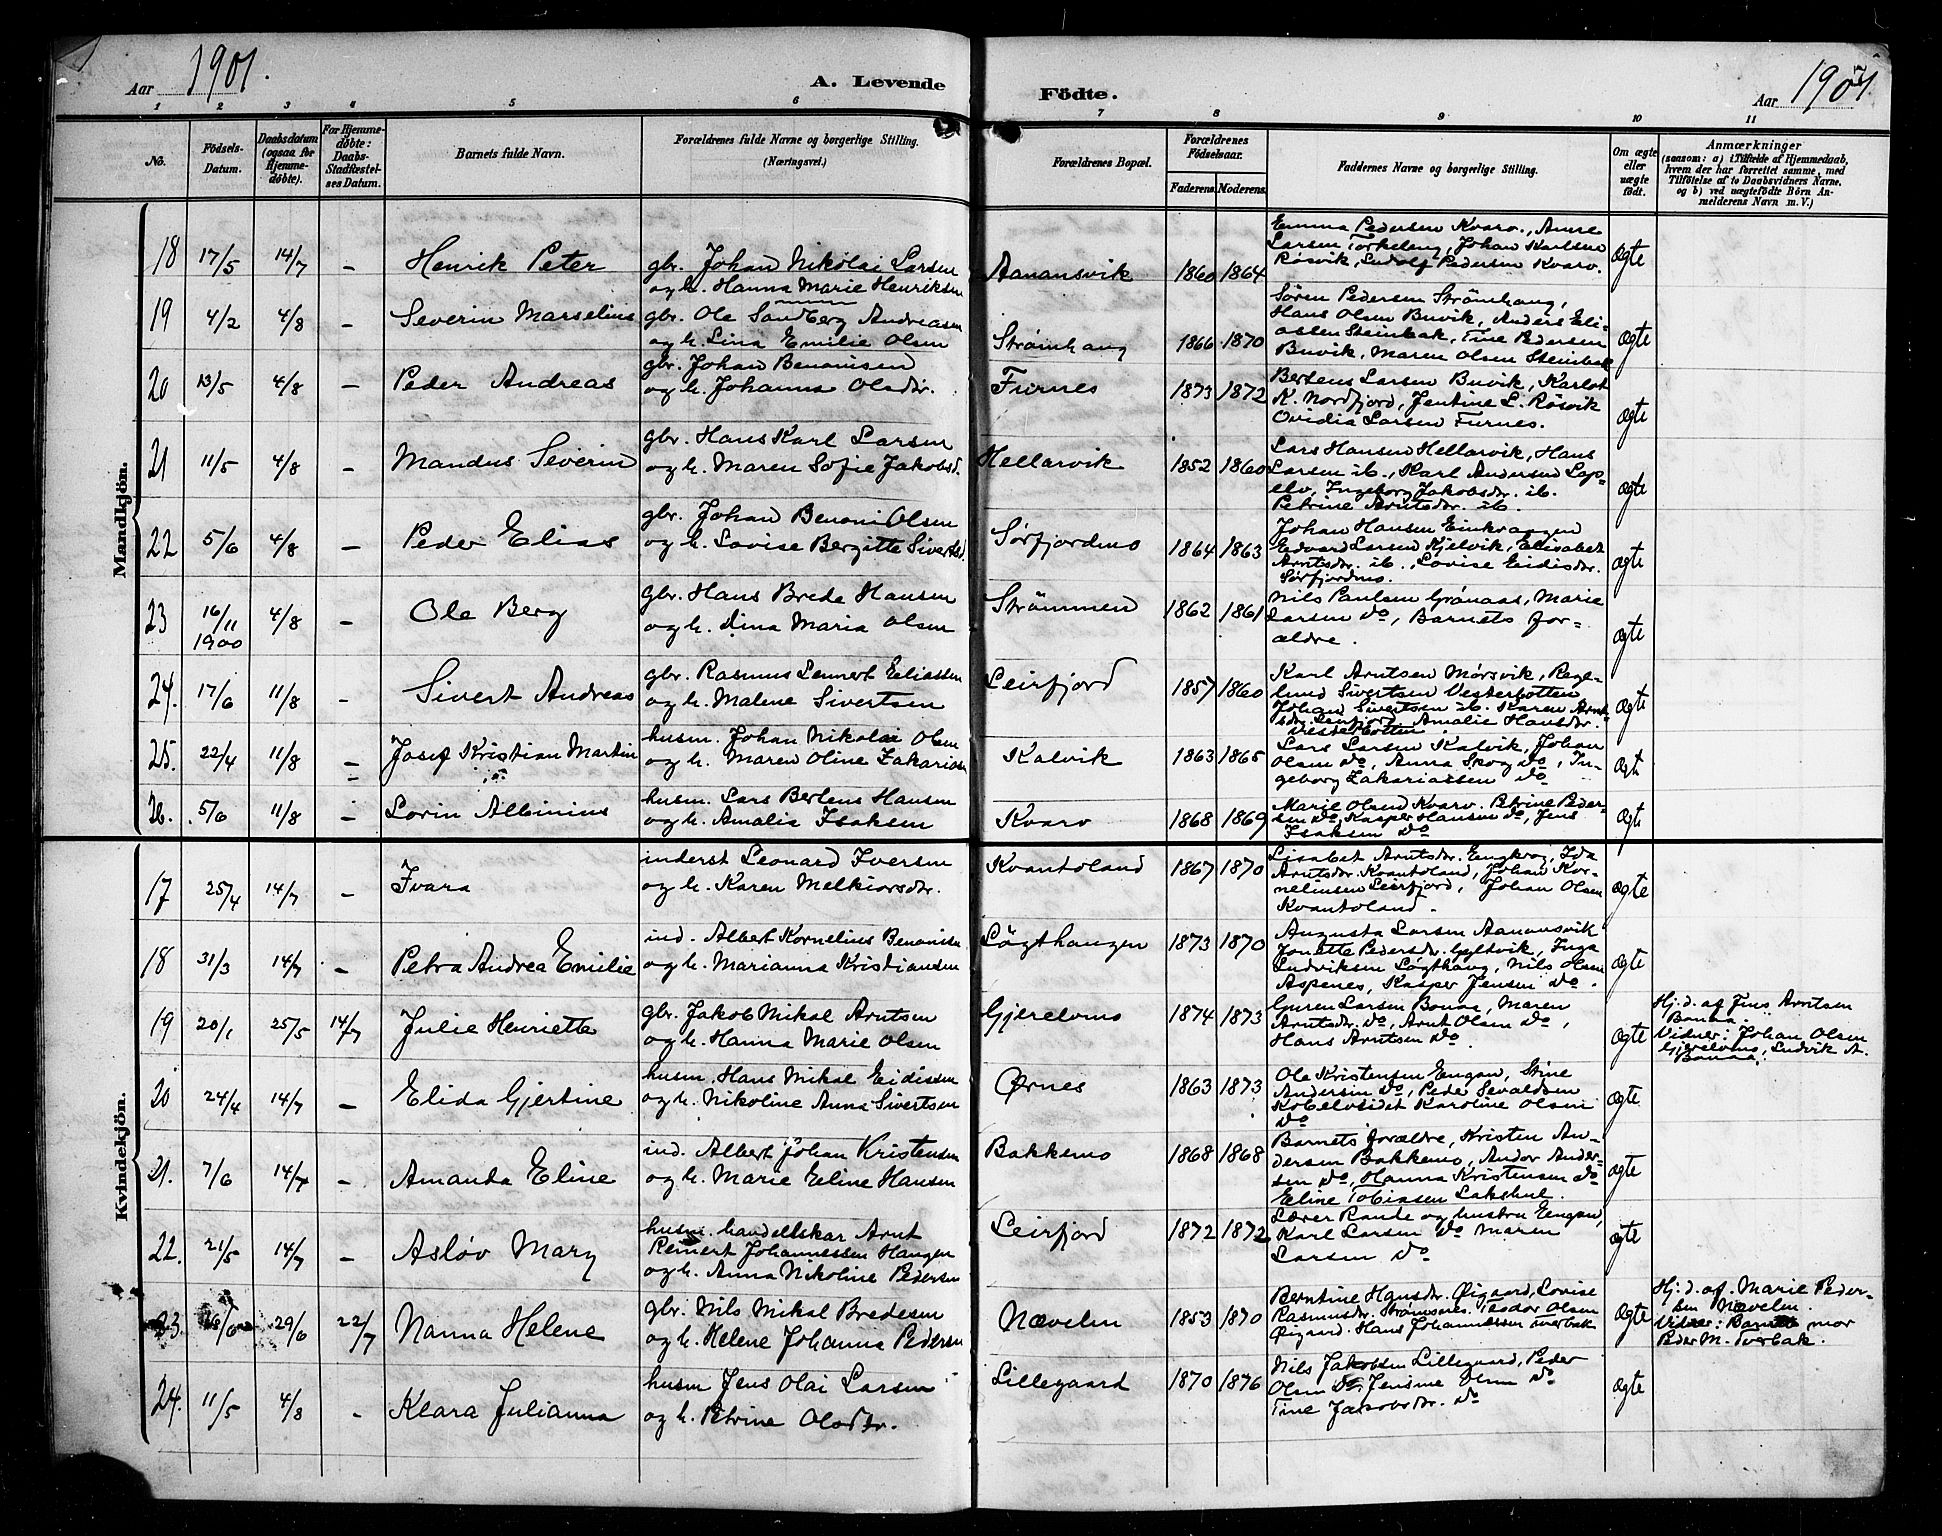 Aar 1901. A. Levende Födte. Aar 1901.
1 2 3 4 5 6 7 8 9 10 11
No.
Födsels-
Datum.
Daabsdatum
(ogsaa for
Hjemme-
döbte).
For Hjemme-
döbte:
Daabs-
Stadfæstel-
ses Datum.
Barnets fulde Navn.
Forældrenes fulde Navne og borgerlige Stilling.
(Næringsvei.)
Forældrenes Bopæl.
Forældrenes
Födselsaar.
Faderens. Moderens.
Faddernes Navne og borgerlige Stilling.
Om ægte
eller
uægte
födt.
Anmærkninger
(saasom: a) i Tilfælde af Hjemmedaab,
hvem der har forrettet samme, med
Tilföielse af to Daabsvidners Navne,
og b) ved uægtefödte Börn An-
melderens Navn m. V.)
Mandkjön.
18 17/5 14/7 – Henrik Peter
gbr. Johan Nikolai Larsen
og h. Hanna Marie Henriksen
Aanansvik 1860 1864
Emma Pedersen Kvarv., Anne
Larsen Torkeleng, Johan Karlsen
Røsvik, Ludolf Pedersen Kvarv.
Ægte
19 4/2 4/8 – Severin Marselius
gbr. Ole Sandberg Andreasen
og h. Lina Emilie Olsen
Strømhaug 1866 1870
Søren Pedersen Strømhaug,
Hans Olsen Buvik, Anders Eli-
assen Steinbak, Tine Pedersen
Buvik, Maren Olsen Steinbak
Ægte
20 13/5 4/8 – Peder Andreas
gbr. Johan Benonisen
og h. Johanna Olsdtr.
Furnes 1873 1872
Bertens Larsen Buvik, Karlot
K. Nordfjord, Jentine L. Røsvik
Ovidia Larsen Furnes.
Ægte
21 11/5 4/8 – Mandus Severin
gbr. Hans Karl Larsen
og h. Maren Sofie Jakobsd.
Hellarvik 1852 1860
Lars Hansen Hellarvik, Hans
Larsen ib., Karl Andersen Lap-
elv, Ingeborg Jakobsdr. ib.
Petrine Arntsdr. ib.
Ægte
22 5/6 4/8 – Peder Elias
gbr. Johan Benoni Olsen
og h. Lovise Bergitte Sivertsd.
Sørfjordmo 1864 1863
Johan Hansen Einkrangen
Edvard Larsen Kjelvik, Elisabet
Arntsdr. ib., Lovise Eidisdr.
Sørfjordmo.
Ægte
23 16/11 1900 4/8 – Ole Berg
gbr. Hans Brede Hansen
og h. Dina Maria Olsen
Strømmen 1862 1861
Nils Paulsen Grønaas, Marie
Larsen do, Barnets for-
ældre.
Ægte
24. 17/6 11/8 – Sivert Andreas
gbr. Rasmus Lennert Eliassen
og h. Malene Sivertsen
Leirfjord 1857 1860
Karl Arntsen Mørsvik, Rege-
lund Sivertsen Vesterbotten
Johan Sivertsen ib. Karen Arnt-
sdr. Leirfjord, Amalie Hansdr.
Vesterbotten.
Ægte
25. 22/4 11/8 – Josef Kristian Martin
husm. Johan Nikolai Olsen
og h. Maren Oline Zakariasen
Kalvik 1863 1865
Lars Larsen Kalvik, Johan
Olsen do, Anna Skog do, In-
geborg Zakariassen do
Ægt
26. 5/6 11/8 – Lorin Albinius
husm. Lars Bertens Hansen
og h. Amalia Isaksen
Kvarv 1868 1869
Marie Olsen Kvarv. Petrine Peder-
sen do, Kasper Hansen do, Jens
Isaksen do
Ægte
Kvindekjön.
17 25/4 14/7 – Ivara
inderst Leonard Iversen
og h. Karen Melkiorsdr.
Kvantoland 1867 1870
Lisabet Arntsdr. Engkrog, Ida
Arntsdr. Kvantoland, Johan Kor-
nelinsen Leirfjord, Johan Olsen
Kvantoland.
Ægte
18 31/3 14/7 – Petra Andrea Emilie
ind. Albert Kornelius Benonisen
og h. Marianna Kristiansen
Løgthaugen 1873 1870
Augusta Larsen Aanansvik
Jonette Pedersdr. Gyltvik, Inga
Ludviksen Løgthaug, Nils Olsen
Aspenes, Kasper Jensen do.
Ægte
19 20/1 25/5 14/7 Julie Henriette
gbr. Jakob Mikal Arntsen
og h. Hanna Marie Olsen
Gjerelvmo 1874 1873
Guren Larsen Bonaa, Maren
Arntsdr. do, Arnt Olsen do,
Hans Arntsen do
Ægte
Hj. d. af Jens Arntsen
Bonaa.
Vidner: Johan Olsen
Gjerelvmo, Ludvik A.
Bonaa.
20 24/4 14/7 – Elida Gjertine
husm. Hans Mikal Eidissen
og h. Nikoline Anna Sivertsen
Ørnes 1863 1873
Ole Kristensen Engan, Stine
Andersen do, Peder Sevaldsen
Kobelvsidet Karoline Olsen
do
Ægte
21. 7/6 14/7 – Amanda Eline
ind. Albert Johan Kristensen
og h. Marie Eline Hansen
Bakkemo 1868 1868
Barnets forældre, Kristen An-
dersen Bakkemo, Andor Ander-
sen do, Hanna Kristensen do
Eline Tobiasen Lakshul.
Ægte
22. 21/5 14/7 – Asløv Mary
husm. handelskar Arnt
Reinert Johannessen Haugen
og h. Anna Nikoline Pedersen
Leirfjord 1872 1872
Lærer Rande og hustru Engan,
Karl Larsen do Maren
Larsen do
Ægte
23. 16/6 29/6 22/7 Nanna Helene
gbr. Nils Mikal Bredesen
og h. Helene Johanna Pedersen
Nævelen 1853 1870
Berntine Hansdr. Øigaard, Lovise
Rasmusdr. Strømsnes. Teodor Olsen
Øigaard. Hans Johannessen Tverbak
Ægte
Hj. d. af. Marie Peder-
sen Nævelen.
Vidner: Barnets mor
Peder M. Tverbak.
24. 11/5 4/8 – Klara Julianna
husm Jens Olai Larsen
og h. Petrine Olsdtr.
Lillegaard 1870 1876
Nils Jakobsen Lillegaard, Peder
Olsen do, Jensine Olsen do
Tine Jakobsdr. do
Ægte